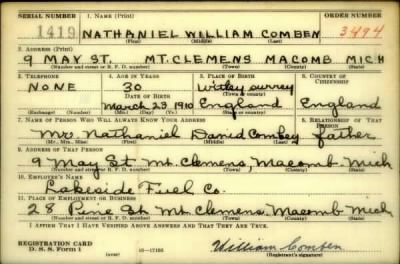 SERIAL NUMBER 1. NAME (Print) ORDER NUMBER
1419 NATHANIEL WILLIAM COMBEN 3494
(First) (Middle) (Last)
2. ADDRESS (Print)
9 MAY ST. MT. CLEMENS MACOMB MICH
(Number and street or R. F. D. number) (Town) (County) (State)
3. TELEPHONE 4. AGE IN YEARS 5. PLACE OF BIRTH 6. COUNTRY OF CITIZENSHIP
NONE 30 Witley surrey
DATE OF BIRTH (Town or county)
March 23 1910 England England
(Exchange) (Number) (Mo.) (Day) (Yr.) (State or country)
7. NAME OF PERSON WHO WILL ALWAYS KNOW YOUR ADDRESS 8. RELATIONSHIP OF THAT PERSON
Mr. Nathaniel David father
(Mr., Mrs., Miss) (First) (Middle) (Last)
9. ADDRESS OF THAT PERSON
9 May St Mt. Clemens, Macomb Mich
(Number and street or R. F. D. number) (Town) (County) (State)
10. EMPLOYER'S NAME
Lakeside Fuel Co.
11. PLACE OF EMPLOYMENT OR BUSINESS
28 Pine St Mt. Clemens, Macomb Mich
(Number and street or R. F. D. number) (Town) (County) (State)
I AFFIRM THAT I HAVE VERIFIED ABOVE ANSWERS AND THAT THEY ARE TRUE.
REGISTRATION CARD
D. S. S. Form 1 (over) William Comben
(Registrant's signature)